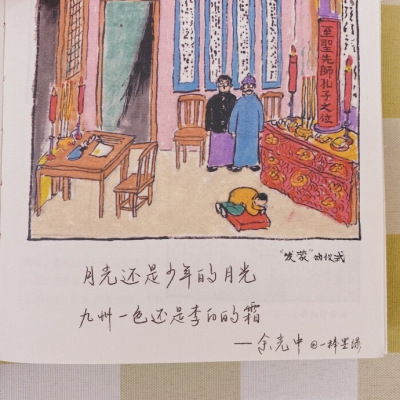 至聖先師孔子之位
“发蒙”的仪式
月光还是少年的月光
九州一色还是李白的霜
——余光中 @一棒墨绿